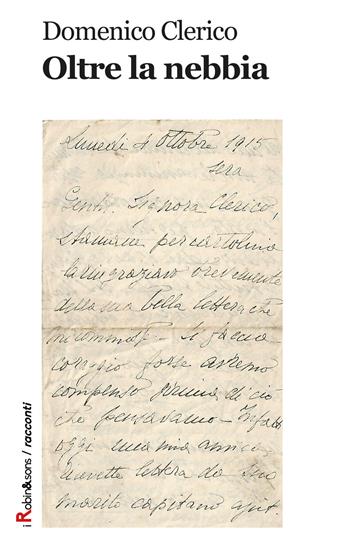 Domenico Clerico
Oltre la nebbia
Lunedì 4 Ottobre 1915
sera
Gent. Signora Clerico,
stamane per cartolina
la ringraziavo brevemente
della sua bella lettera che
mi commosse. Si faccia
coraggio forse avremo
compenso prima di ciò
che pensavamo - Infatti
oggi una mia amica
ricevette lettera da suo
marito capitano
i Robin&sons / racconti